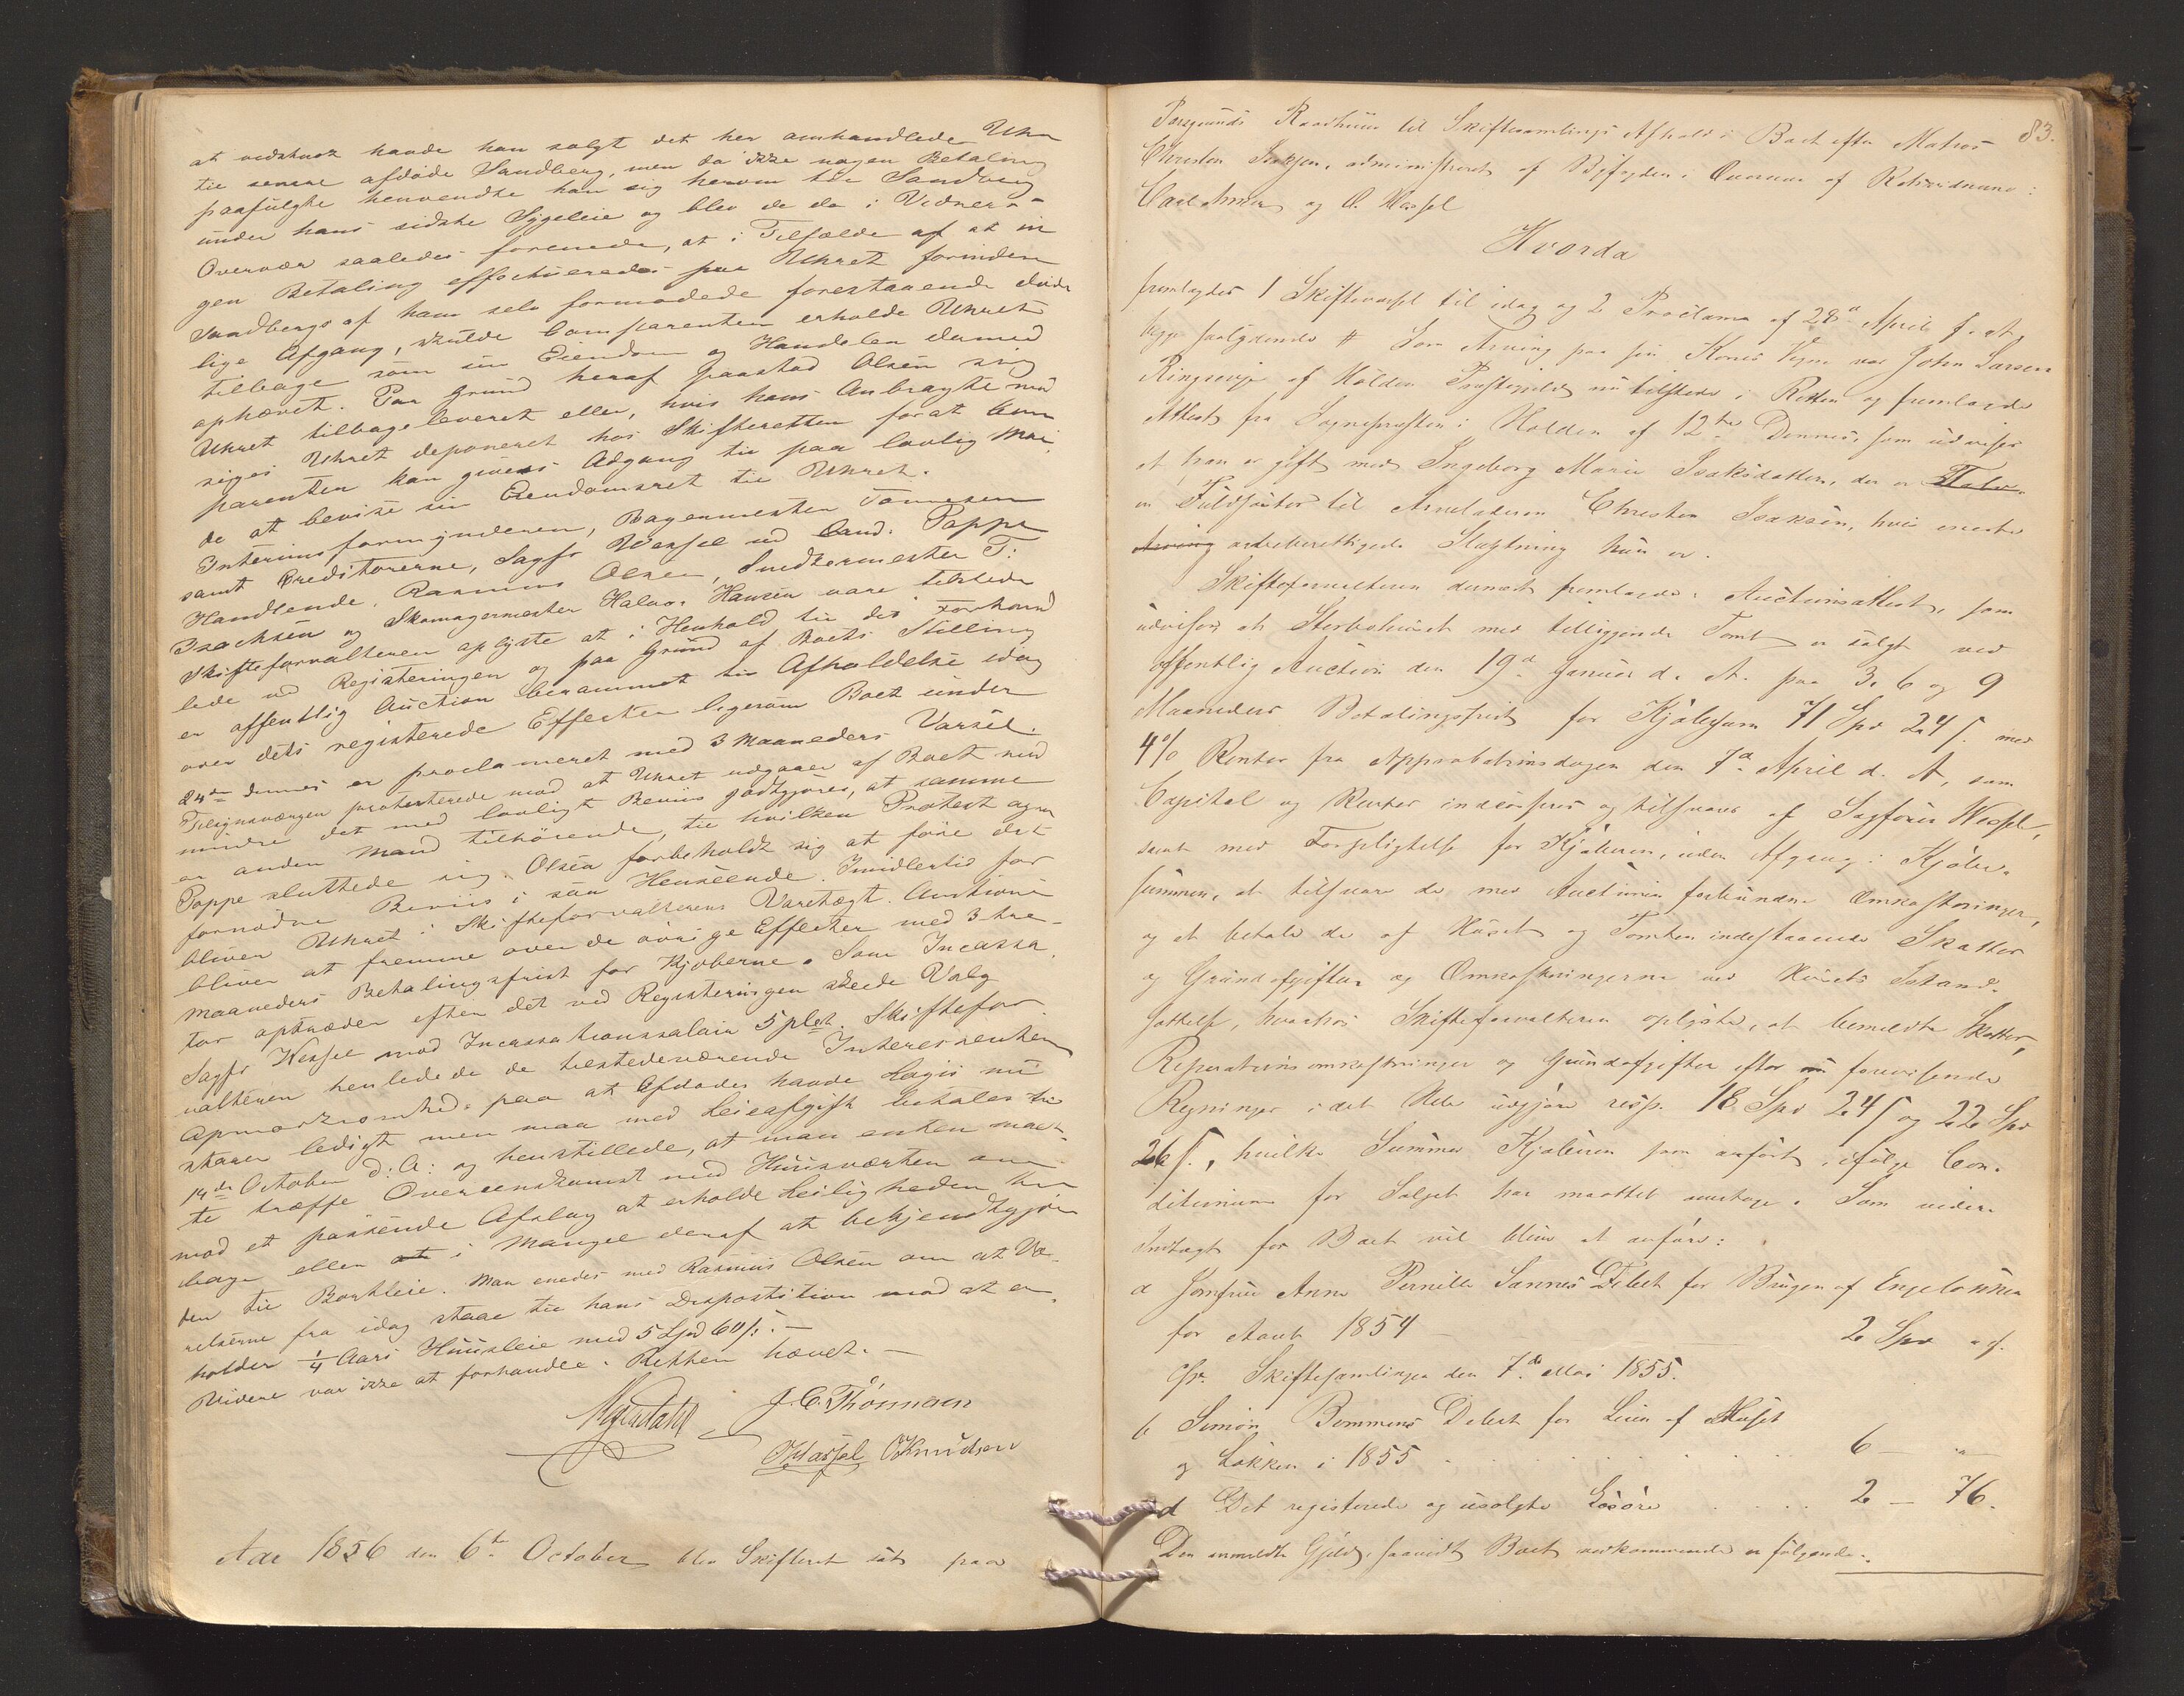 at vedstuck havde han solgt det her omhandlede Uhr
til senere afdøde Sandberg, men da ikke nogen Betaling
paafulgte henvendte han sig herom til Sandberg
under hans sidste Sygeleie og blev de da i Vidners
Overvær saaledes forenede, at i Tilfælde af at in
gen Betaling effectueredes paa Uhret forinden
Sandbergs af ham selv formodede forestaaende døde
lige Afgang, skulde Comparenten erholde Uhret
tilbage som sin Eiendom og Handelen dermed
ophævet. Paa Grund heraf paastod Olsen sig
Uhret tilbageleveret eller, hvis hans Anbragte mod
siges Uhret deponeret hos Skifteretten forat Com
parenten kan gives Adgang til paa lovlig Maa
de at bevise sin Eiendomsret til Uhret.
Interimsformynderen, Bagermester Tønnesen
samt Creditorerne, Sagfr Wessel ved Cand. Poppe
Handlende Rasmus Olsen, Snedkermester T:
Isachsen og Skomagermester Halvor Hansen vare tilstede
Skifteforvalteren oplyste at i Henhold til det Forhand
lede ved Registeringen og paa Grund af Boets Stilling
er offentlig Auction berammet til Afholdelse idag
over dets registerede Effecter ligesom Boet under
24de dennes er proclameret med 3 Maaneders Varsel.
Tilsynsværgen protesterede mod at Uhret udgaaer af Boet med
mindre det med lovligt Beviis godtgjøres, at samme
er anden Mand tilhørende, til hvilken Protest ogsaa
Poppe sluttede sig. Olsen forbeholdt sig at føre det
fornødne Beviis i saa Henseende. Imidlertid for
bliver Uhret i Skifteforvalterens Varetægt. Auctionen
bliver at fremme over de øvrige Effecter med 3 tre
Maaneders Betalingsfrist for Kjøberne. Som Incassa
tor optræder efter det ved Registeringen skeede Valg
Sagfr Wessel mod Incassationssalair 5 pCt. Skiftefor
valteren henledede de tilstedeværende Interessenters
Opmærksomhed paa at Afdødes havde Logis nu
staaer ledigt men maa med Leieafgift betales til
14de October d: A: og henstillede, at man enten maat
te træffe Overeenskomst med Huusværten om
mod et passende Afslag at erholde Leiligheden til
bage eller at i Mangel deraf at bekjendtgjøre
den til Bortleie. Man enedes med Rasmus Olsen om at Væ
relserne fra idag staae til hans Disposition mod at er
holder 1/4 Aars Huusleie med 5 Spd 60 s. —
Videre var ikke at forhandle. Retten hævet. —
J. C. Thönnesen
OHassel OKnudsen
Aar 1856 den 6te October blev Skifteret sat paa
83.
Porsgrunds Raadhuus til Skiftesamlings Afhold i Boet efter Matros
Christen Isaksen, administreret af Byfogden i Overvær af Retsvidnerne:
Carl og O. Hassel
Hvorda
fremlagdes 1 Skiftevarsel til idag og 2 Proclama af 28d April f. A.
begge saalydende # Som Arving paa sin Kones Vegne var John Larsen
Ringsevje af Holden Præstegjeld nu tilstede i Retten og fremlagde
Attest fra Sognepræsten i Holden af 12te Dennes, som udviser
at han er gift med Ingeborg Marie Isaksdatter, der er Halv
en Fuldsøster til Arveladeren Christen Isaksen, hvis eneste
Arving arveberettigede Slægtning hun er.
Skifteforvalteren dernæst fremlagde Auctionsattest, som
udviser, at Sterbohuset med tilliggende Tomt er solgt ved
offentlig Auction den 19d Januar d. A. paa 3, 6 og 9
Maaneders Betalingsfrist for Kjøbesum 71 Spd 24 s. med
4% Renter fra Approbationsdagen den 7d April d. A, som
Capital og Renter indcasseres og tilsvares af Sagfører Wessel,
samt med Forpligtelse for Kjøberen, uden Afgang i Kjøbe-
summen, at tilsvare de med Auctionen forbundne Omkostninger,
og at betale de af Huset og Tomten indestaaende Skatter
og Grundafgifter og Omkostningerne ved Husets Istand-
sættelse, hvorhos Skifteforvalteren oplyste, at bemeldte Skatter,
Reparationsomkostninger og Grundafgifter efter nu foreviste
Regninger i det Hele udgjøre resp. 18 Spd 24 s og 22 Spd
26 s., hvilke Summer Kjøberen som anført, ifølge Con-
ditionerne for Salget har maattet overtage. Som videre
Indtægt for Boet vil blive at anføre:
a Jomfru Anne Pernille Sannes Debet for Brugen af Engeløkken
for Aaret 1854 — 2 Spd " s.
Cfr. Skiftesamlingen den 7de Mai 1855.
b Simon Bommens Debet for Leien af Huset
og Løkken i 1855 . . . . . . 6 — " —
d Det registerede og usolgte Løsøre . . . 2 — 76.
Den anmeldte Gjeld, saavidt Boet vedkommende er følgende: